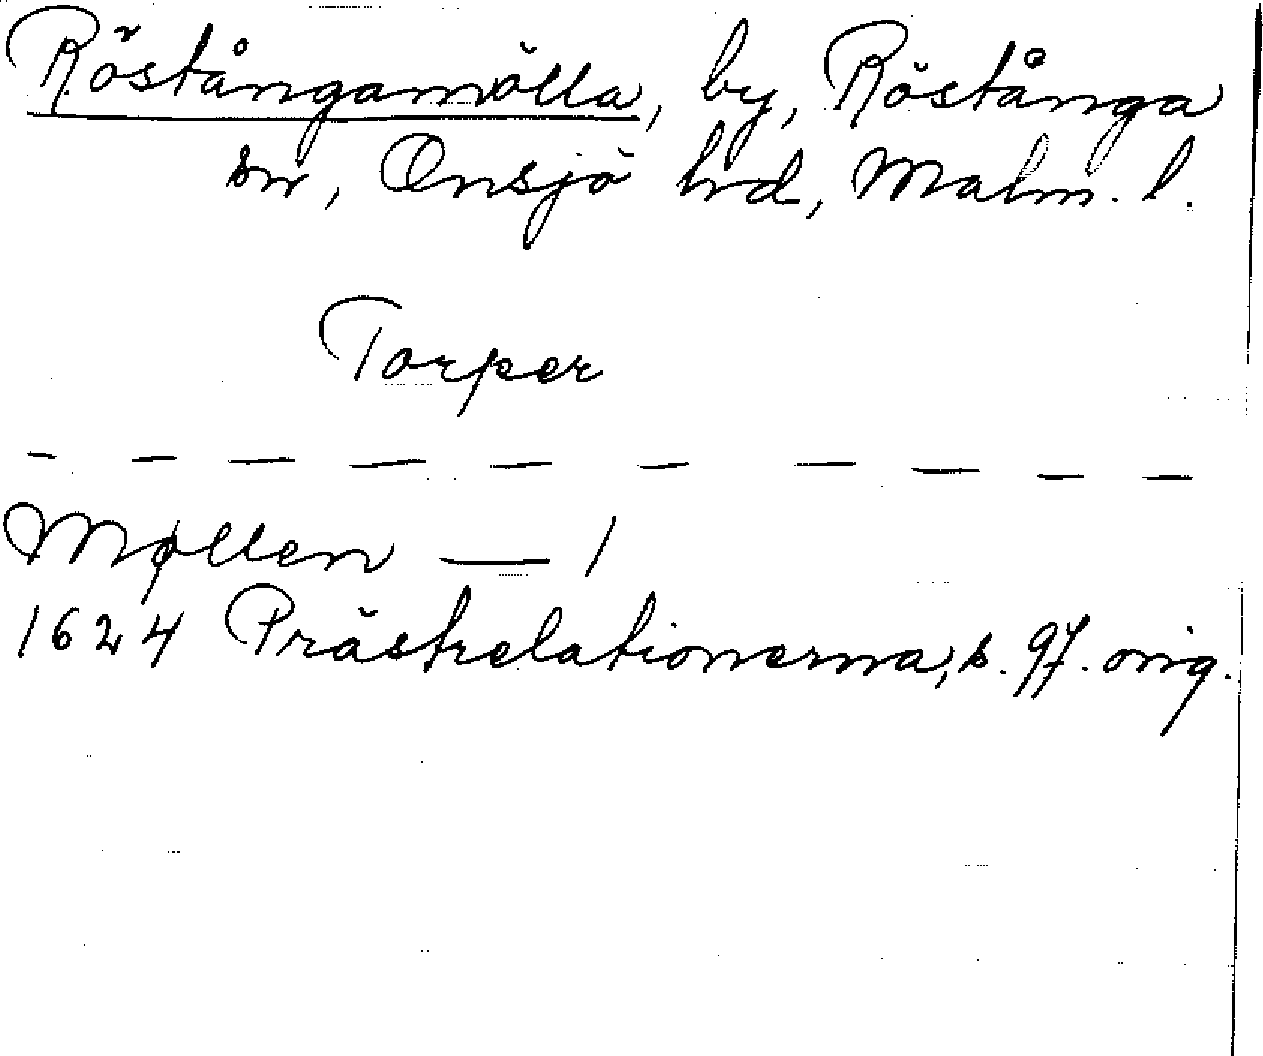 Röstångamölla, by, Röstånga
sn, Onsjö hd, Malm. l.
Torper
— — — — — — — — — —
Møllen — 1
1624 Prästrelationerna, s. 97. orig.